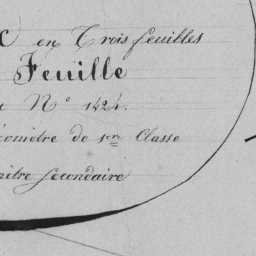 en Trois feuilles
Feuille
N° 1424.
éomètre de 1re Classe
mètre secondaire